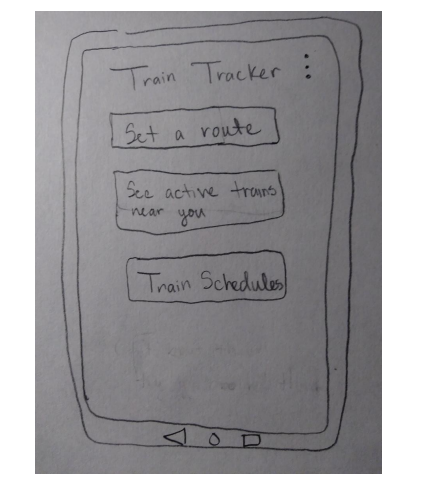 Train Tracker
Set a route
See active trains
near you
Train Schedules